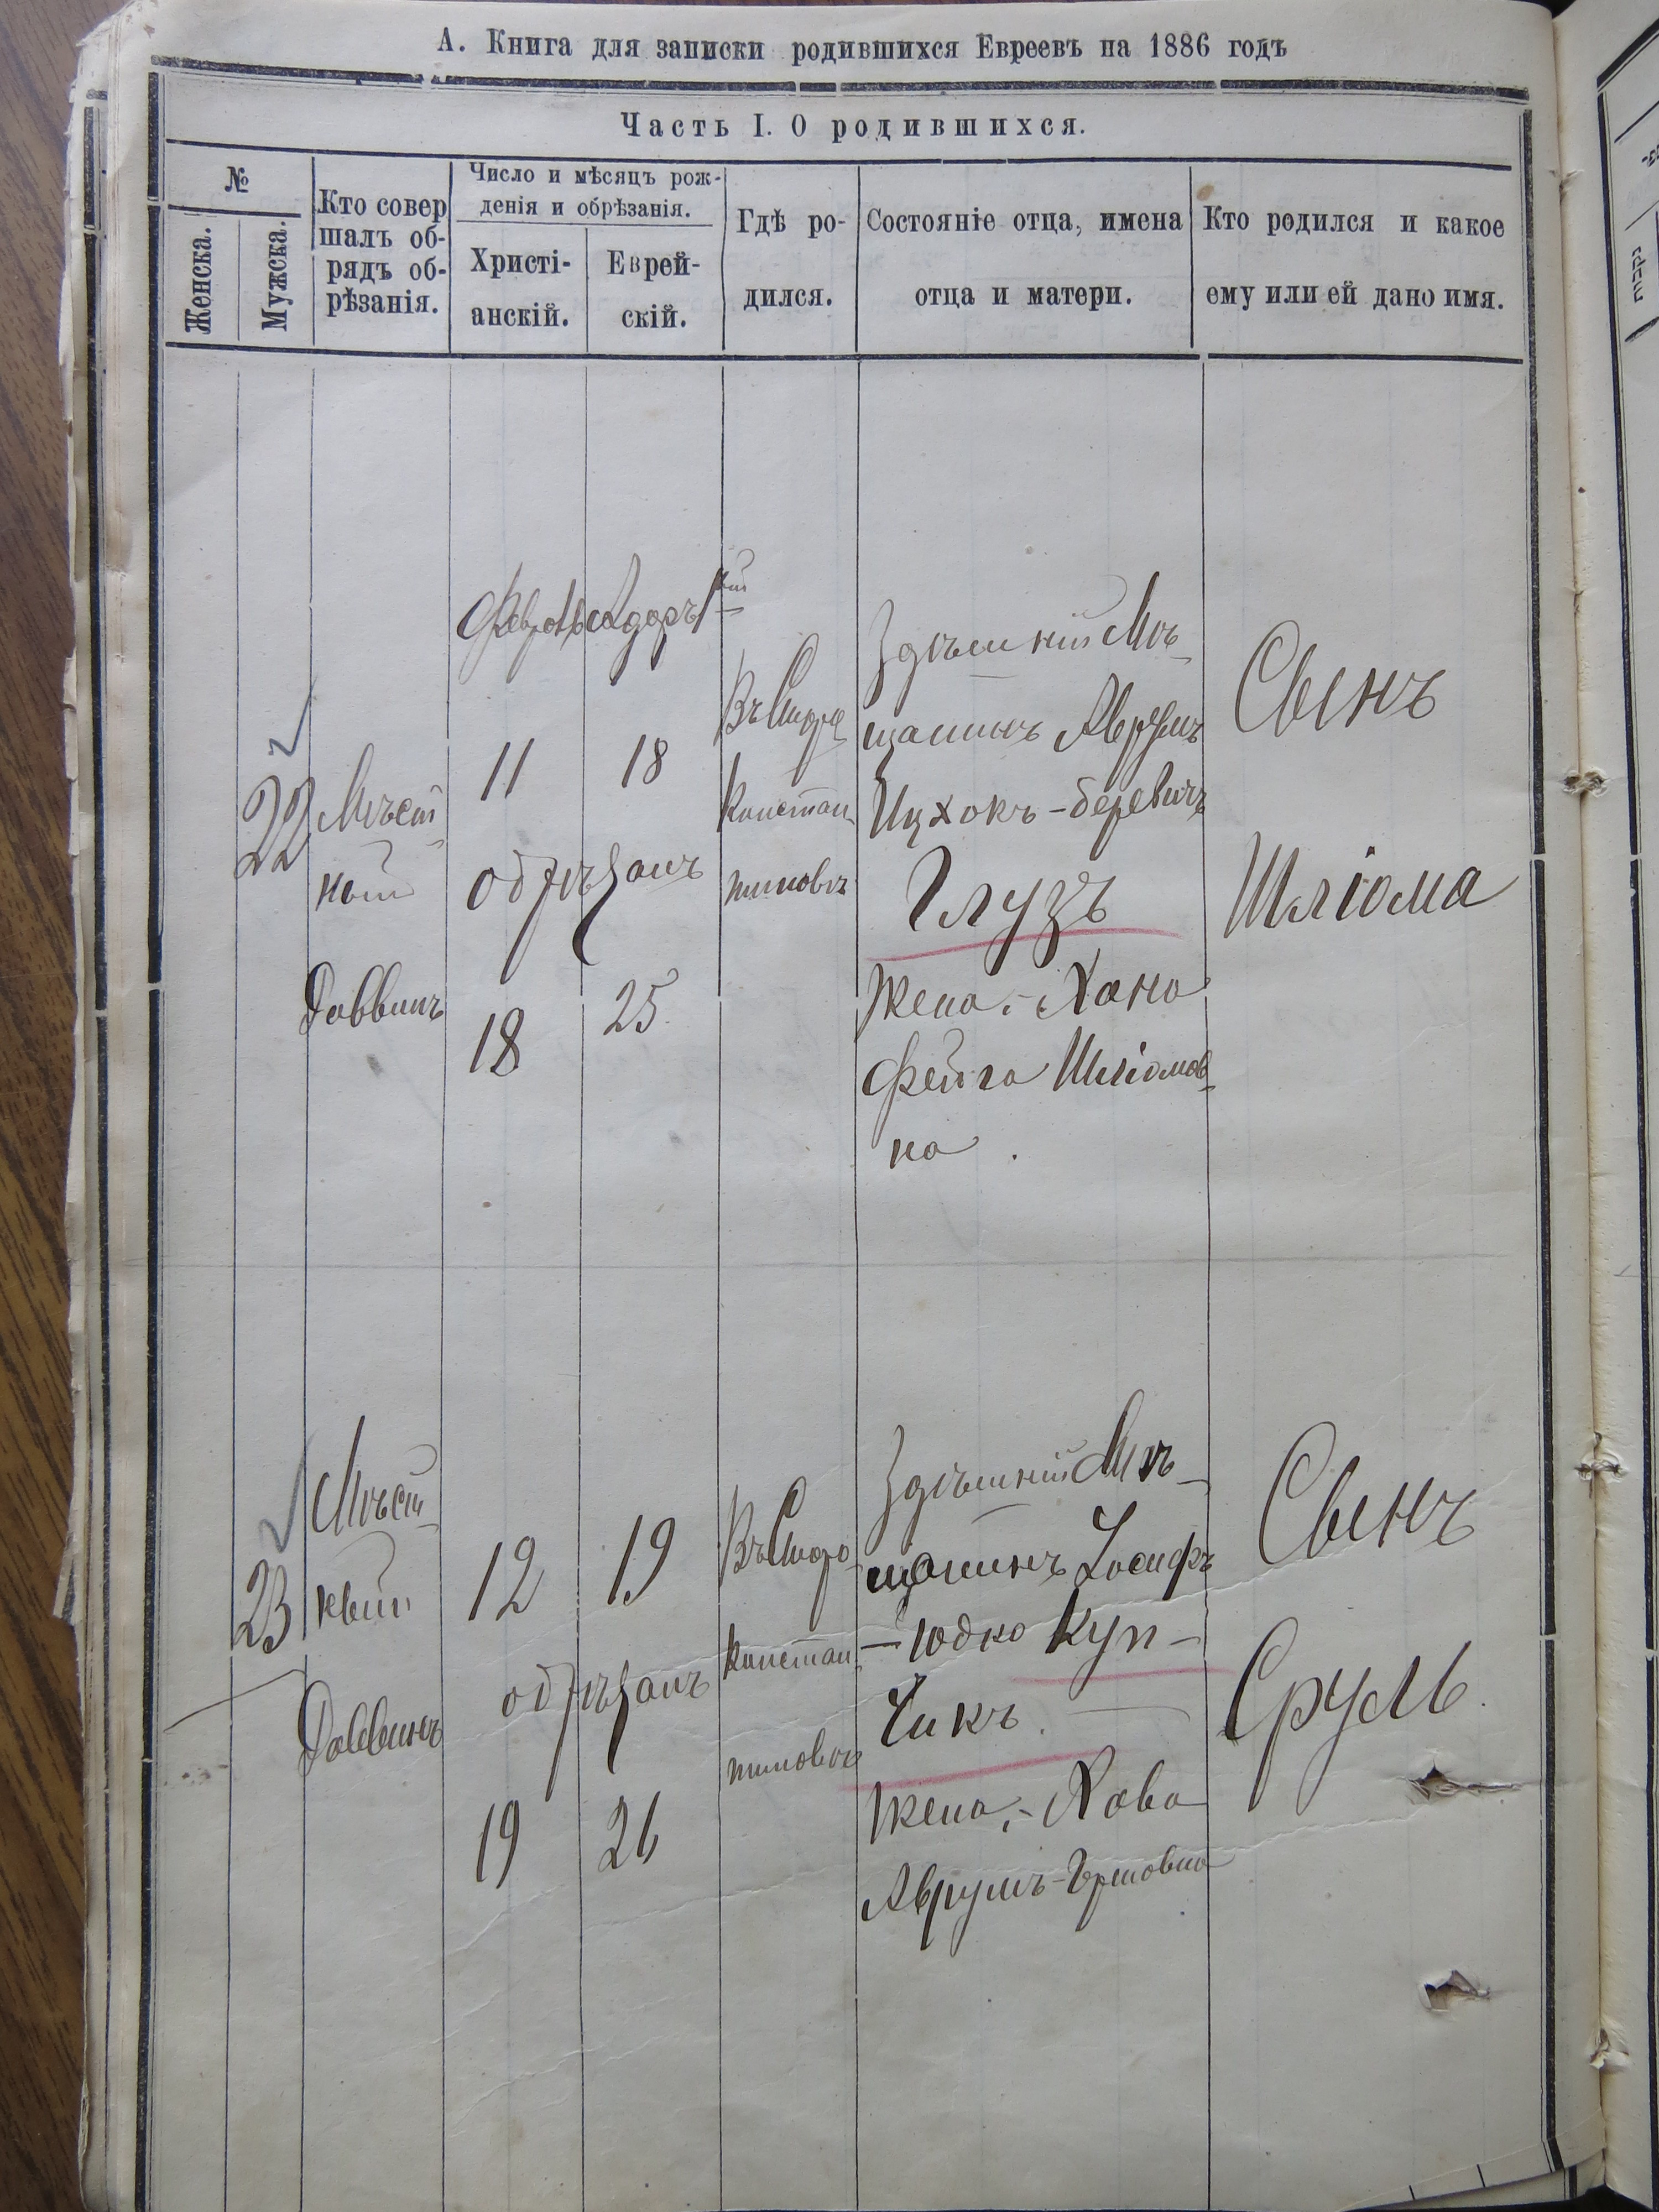 А. Книга для записки родившихся Евреевъ на 1886 годъ
Часть I. О родившихся.
№
Женска.
Мужска.
Кто совер
шалъ об-
рядъ об-
рѣзанія.
Число и мѣсяцъ рож-
денія и обрѣзанія.
Христі-
анскій.
Еврей-
скій.
Гдѣ ро-
дился.
Состояніе отца, имена
отца и матери.
Кто родился и какое
ему или ей дано имя.
22
Мѣст
ный
Раввинъ
Февраль
11
обрѣзанъ
18
Адаръ 1й
18
25
Въ Старо
Констан
тиновѣ
Здѣшній Мѣ
щанинъ Аврумъ
Ицхокъ-беревичъ
Глузъ
Жена:- Хана
Фейга Шліомов
на.
Сынъ
Шліома
23
Мѣст
ный
Раввинъ
12
обрѣзанъ
19
19
26
Въ Старо
Констан
тиновѣ
Здѣшній Мѣ
щанинъ Іосифъ
-Юдко Куп-
чикъ.
Жена:- Хава
Аврумъ-Гершовна
Сынъ
Сруль.